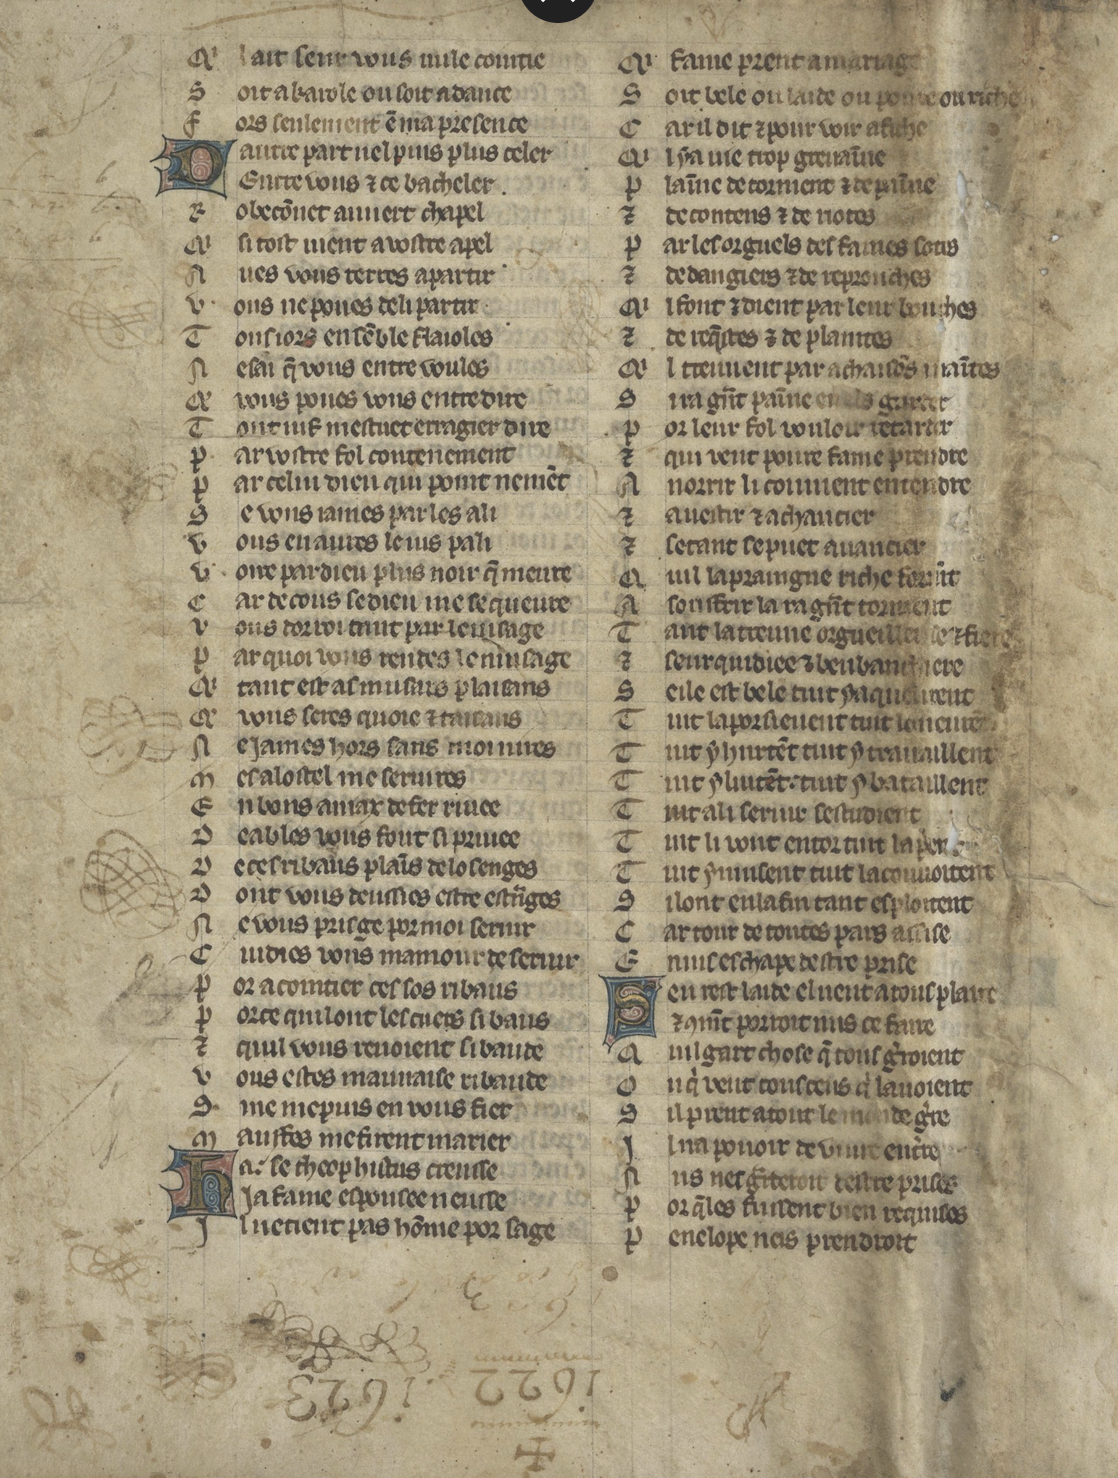 Q' l ait seur vous nule comtie
S oit a barole ou soit a dance
F ors seulement ē ma presence
D autre part nel puis plus celer
Entre vous ⁊ ce bacheler
R obecōnet au vert chapel
Q' si tost vient a vostre apel
A ues vous terres a partir
V ous ne poues de li partir
T ousiors ensēble flaioles
N e sai q̄ vous entre voules
Q' vous poues vous entredire
T out vif mestuet erragier dire
P ar vostre fol contenement
P ar celui dieu qui point ne mēt
S e vous iames parles a li
V ous en aures le vis pali
V oire par dieu plus noir q̄ meure
C ar de cous se dieu me sequeure
V ous dorroi tant par le visage
P ar quoi vous rendes le musage
Q' tant est as musars plaisans
Q' vous seres quoie ⁊ taisans
N e james hors sans moi nires
M es a lostel me seruires
E n bons aniax de fer riuee
D eables vous font si priuee
D e ces ribaus plaīs de losenges
D ont vous deussies estre estrāges
N e vous prisge por moi seruir
C uidies vous mamour deseruir
P or acointier ces sos ribaus
P or ce quil ont les cuers si baus
⁊ quil vous renoient si baude
V ous estes mauuaise ribaude
S me me puis en vous fier
M auffes me firent marier
Ha: se theophrastus creusse
Ja fame espousee neusse
I l ne tient pas hōme por sage
Q' fame prent a mariage
S oit bele ou laide ou poure ou riche
C ar il dit ⁊ pour voir afiche
Q' l ya vie trop greuaīne
P laīne de torment ⁊ de paīne
⁊ de contens ⁊ de notes
P ar les orguels des fames sotes
⁊ de dangiers ⁊ de reprouches
Q' l font ⁊ dient par leur bouches
⁊ de req̄stes ⁊ de plaintes
Q' l treuuent par achaisōs maītes
S i ra grāt paīne garder
P or leur fol vouloir retarder
⁊ qui veut poure fame prendre
A norrir li couuient entendre
⁊ a uestir ⁊ a chaucier
⁊ se tant se puet auancier
Q uil la praingne riche forᵐēt
A souffrir la ra grāt torment
T ant la treuue orgueilleuse ⁊ fiere
⁊ seurquidiee ⁊ beubanciere
S elle est bele tuit ÿ aqueurent
T uit la porsieuent tuit leneurēt
T uit ÿ hurtēt tuit ÿ trauaillent
T uit ÿ luitēt: tuit ÿ bataillent
T uit a li seruir sestudient
T uit li vont entor tuit la prient
T uit ÿ musent tuit la couuoitent
S i lont en la fin tant esploitent
C ar tour de toutes pars asise
E nuis eschape destre prise
Se u rest laide el veut a tous plaire
⁊ q̄mt porroit nus ce faire
Q uil gart chose q̄ tous groient
O u q̄ veut tous ceus q̄ lauoient
S il prent a tout le monde gre
I l na pouoir de viure entre
N us nes gderoit destre prises
P or q̄ les fuissent bien requises
P enelope neis prendroit
1623
1622